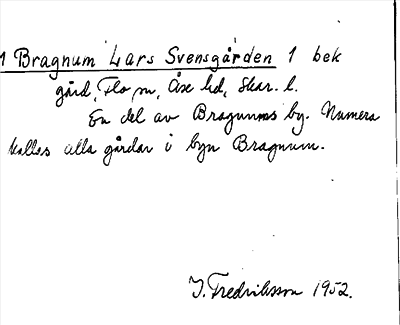 1 Bragnum Lars Svensgården 1 bek
gård, Flo sn, Åse hd, Skar. l.
En del av Bragnums by. Numera
kallas alla gårdar i byn Bragnum.
J. Fredriksson 1952.